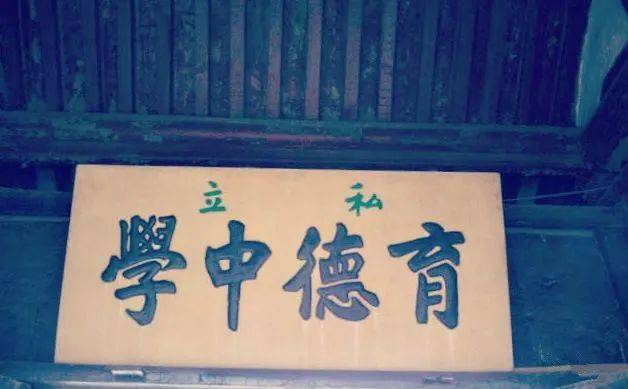 私立
育德中學